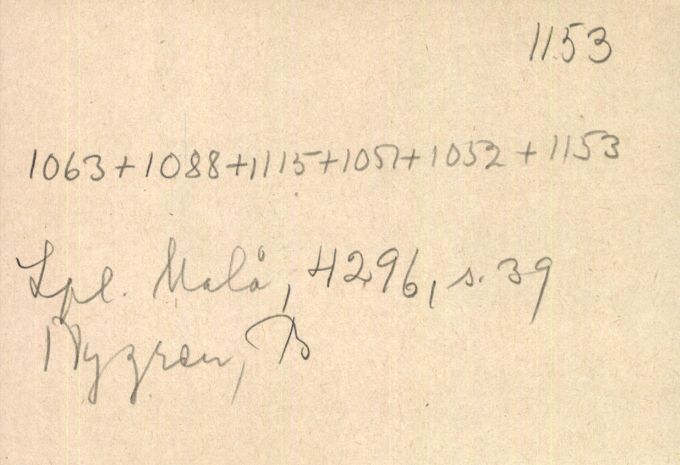 1153
1063+1088+1115+1051+1052+1153
Lpl. Malå, 4296, s. 39
Nygran, B